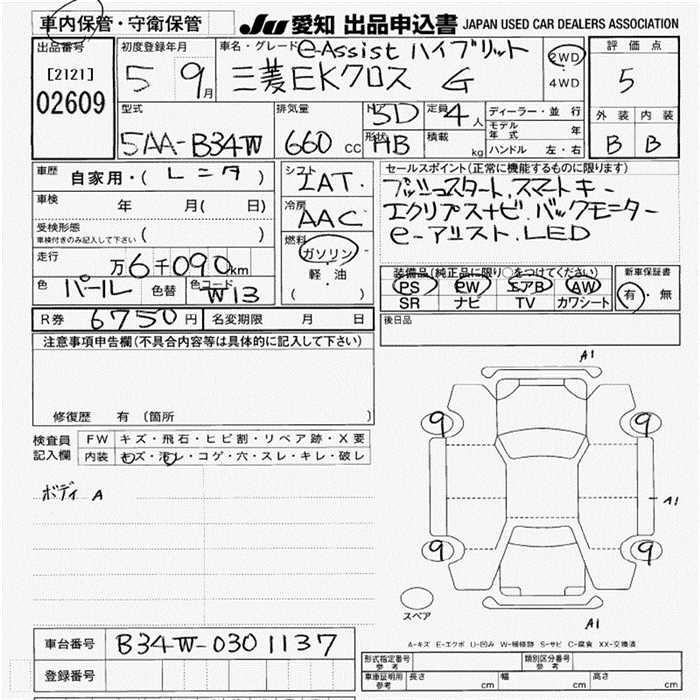 車内保管・守衛保管
JU 愛知 出品申込書 JAPAN USED CAR DEALERS ASSOCIATION
出品番号
[2121]
02609
初度登録年月
5 9月
車名・グレード e-Assist ハイブリット
三菱EKクロス G
2WD
4WD
評価点
5
外装 内装
B B
型式
5AA-B34W
排気量
660 cc
ドア 5D
形状 HB
定員 4人
積載 kg
ディーラー・並行
モデル年式 年
ハンドル 左・右
車歴 自家用・( レンタ )
車検 年 月( 日)
受検形態
車検付きのみ記入して下さい ( )
走行 万6千090km
色 パール 色替 色コード W13
シフト IAT
冷房 AAC
燃料
ガソリン
軽・油
( )
セールスポイント(正常に機能するものに限ります)
プッシュスタート.スマートキー
エクリプスナビ.バックモニター
e-アシスト.LED
装備品(純正品に限り○をつけてください)
PS PW エアB AW
SR ナビ TV カワシート
新車保証書
有・無
R券 6750円 名変期限 月 日
後日品
注意事項申告欄(不具合内容等は具体的に記入して下さい)
修復歴 有 〔箇所 〕
検査員
記入欄
FW キズ・飛石・ヒビ割・リペア跡・X要
内装 キズ・汚レ・コゲ・穴・スレ・キレ・破レ
ボディ A
A1
9 9
A1
9 9
スペア
A1
A-キズ E-エクボ U-凹み W-補修跡 S-サビ C-腐食 XX-交換済
車台番号 B34W-0301137
登録番号
形式指定番号 参考
類別区分番号 参考
車庫証明用 参考 長さ cm 幅 cm 高さ cm